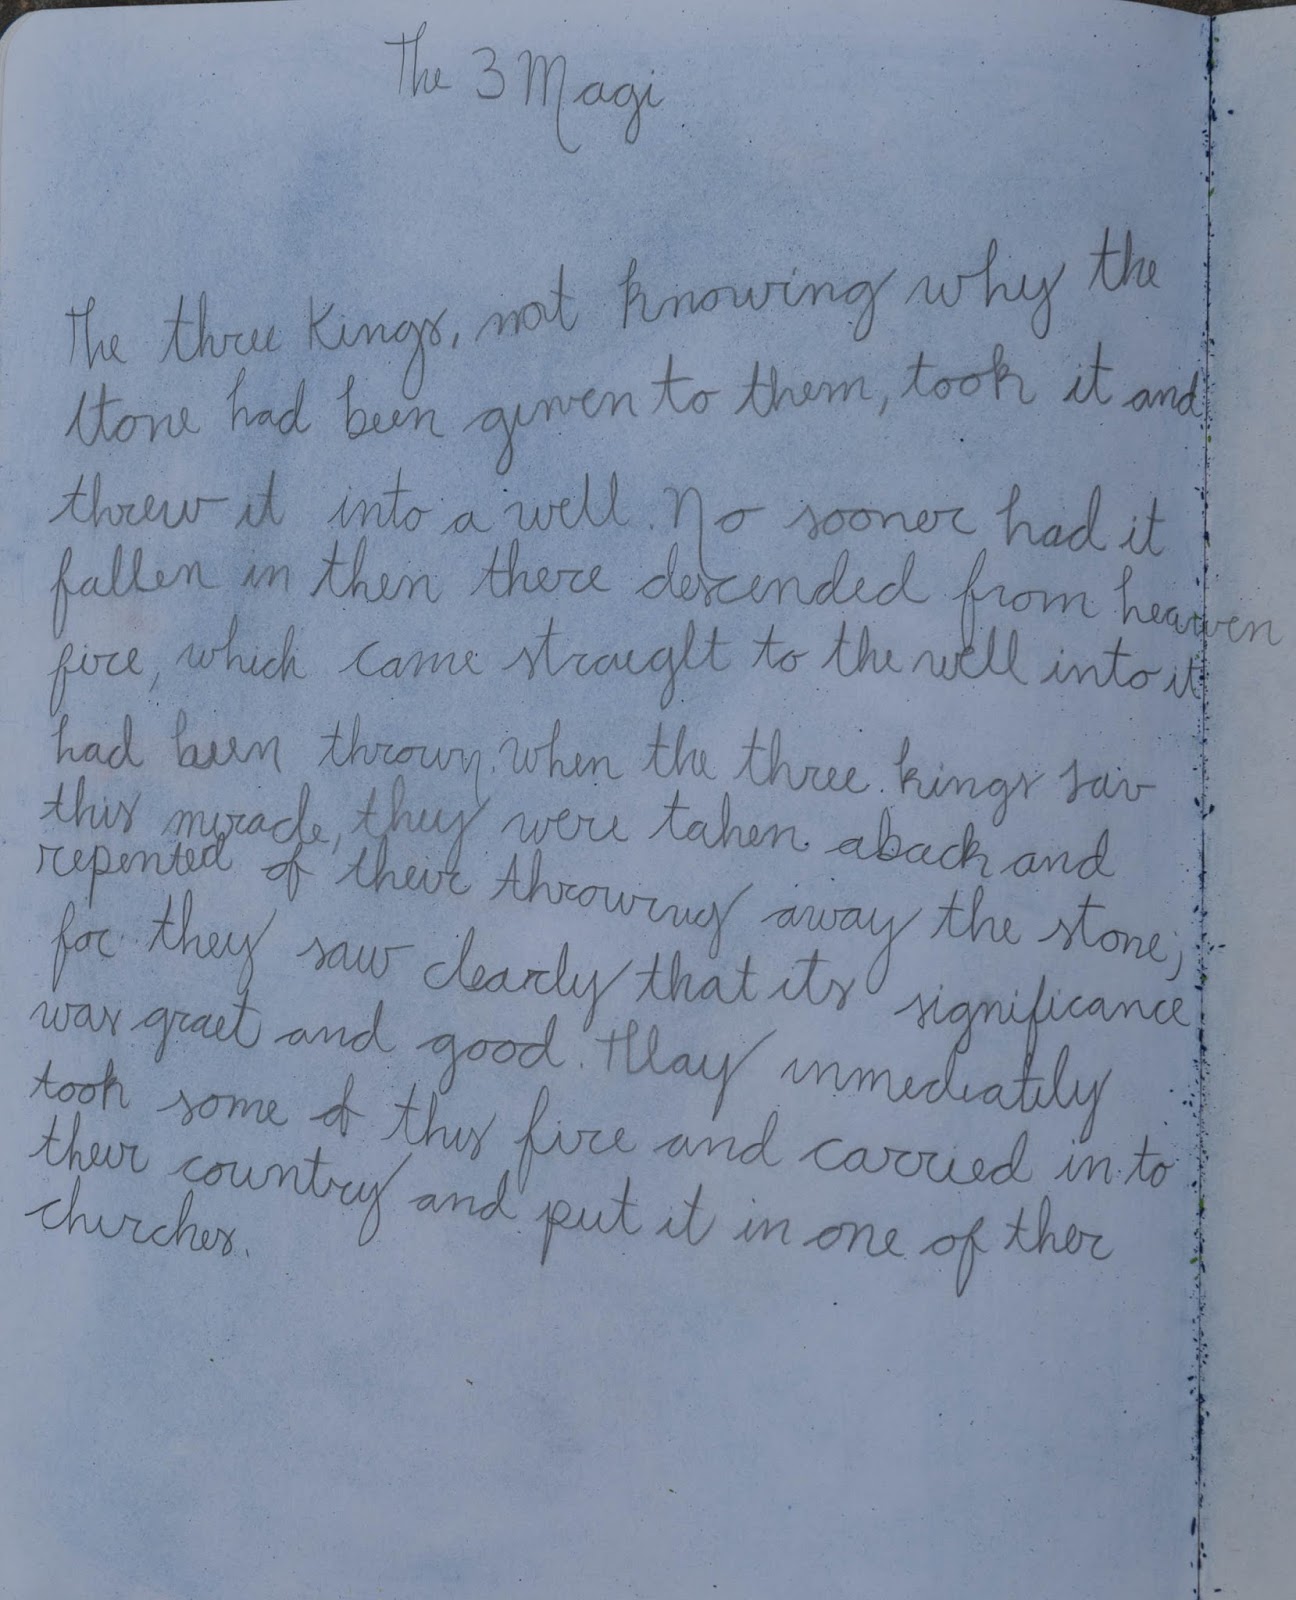 The 3 Magi
The three Kings, not knowing why the
stone had been given to them, took it and
threw it into a well. No sooner had it
fallen in then there descended from heaven
fire, which came straeglt to the well into it
had been thrown. When the three kings sav
this miracle, they were taken aback and
repented of their throwing away the stone;
for they saw clearly that its significance
was graet and good. Thay inmediatily
took some of this fire and carried in to
their country and put it in one of ther
churches.